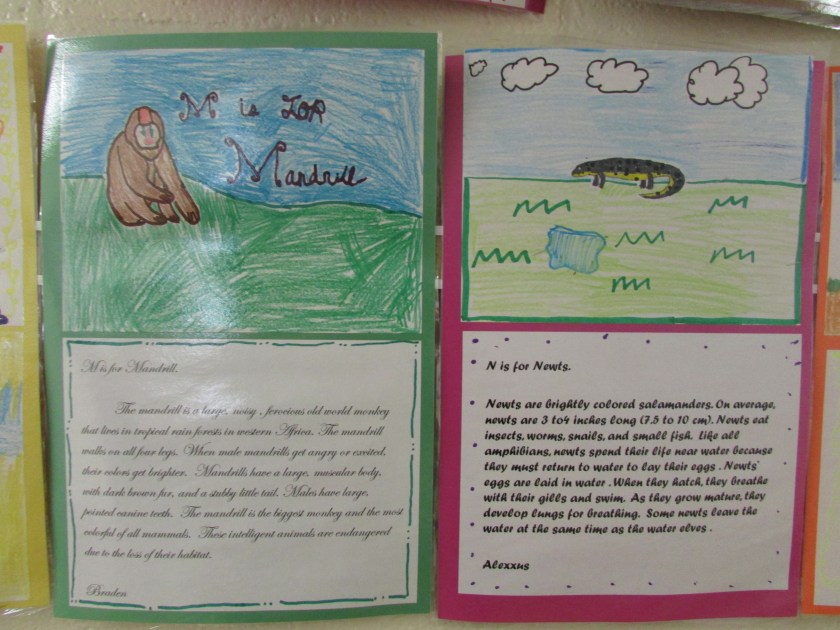 M is FOR
Mandrill
M is for Mandrill.
The mandrill is a large, noisy , ferocious old world monkey
that lives in tropical rain forests in western Africa. The mandrill
walks on all four legs. When male mandrills get angry or excited,
their colors get brighter. Mandrills have a large, muscular body,
with dark brown fur, and a stubby little tail. Males have large,
pointed canine teeth. The mandrill is the biggest monkey and the most
colorful of all mammals. These intelligent animals are endangered
due to the loss of their habitat.
Braden
N is for Newts.
Newts are brightly colored salamanders. On average,
newts are 3 to4 inches long (7.5 to 10 cm). Newts eat
insects, worms, snails, and small fish. Like all
amphibians, newts spend their life near water because
they must return to water to lay their eggs . Newts'
eggs are laid in water . When they hatch, they breathe
with their gills and swim. As they grow mature, they
develop lungs for breathing. Some newts leave the
water at the same time as the water elves .
Alexxus